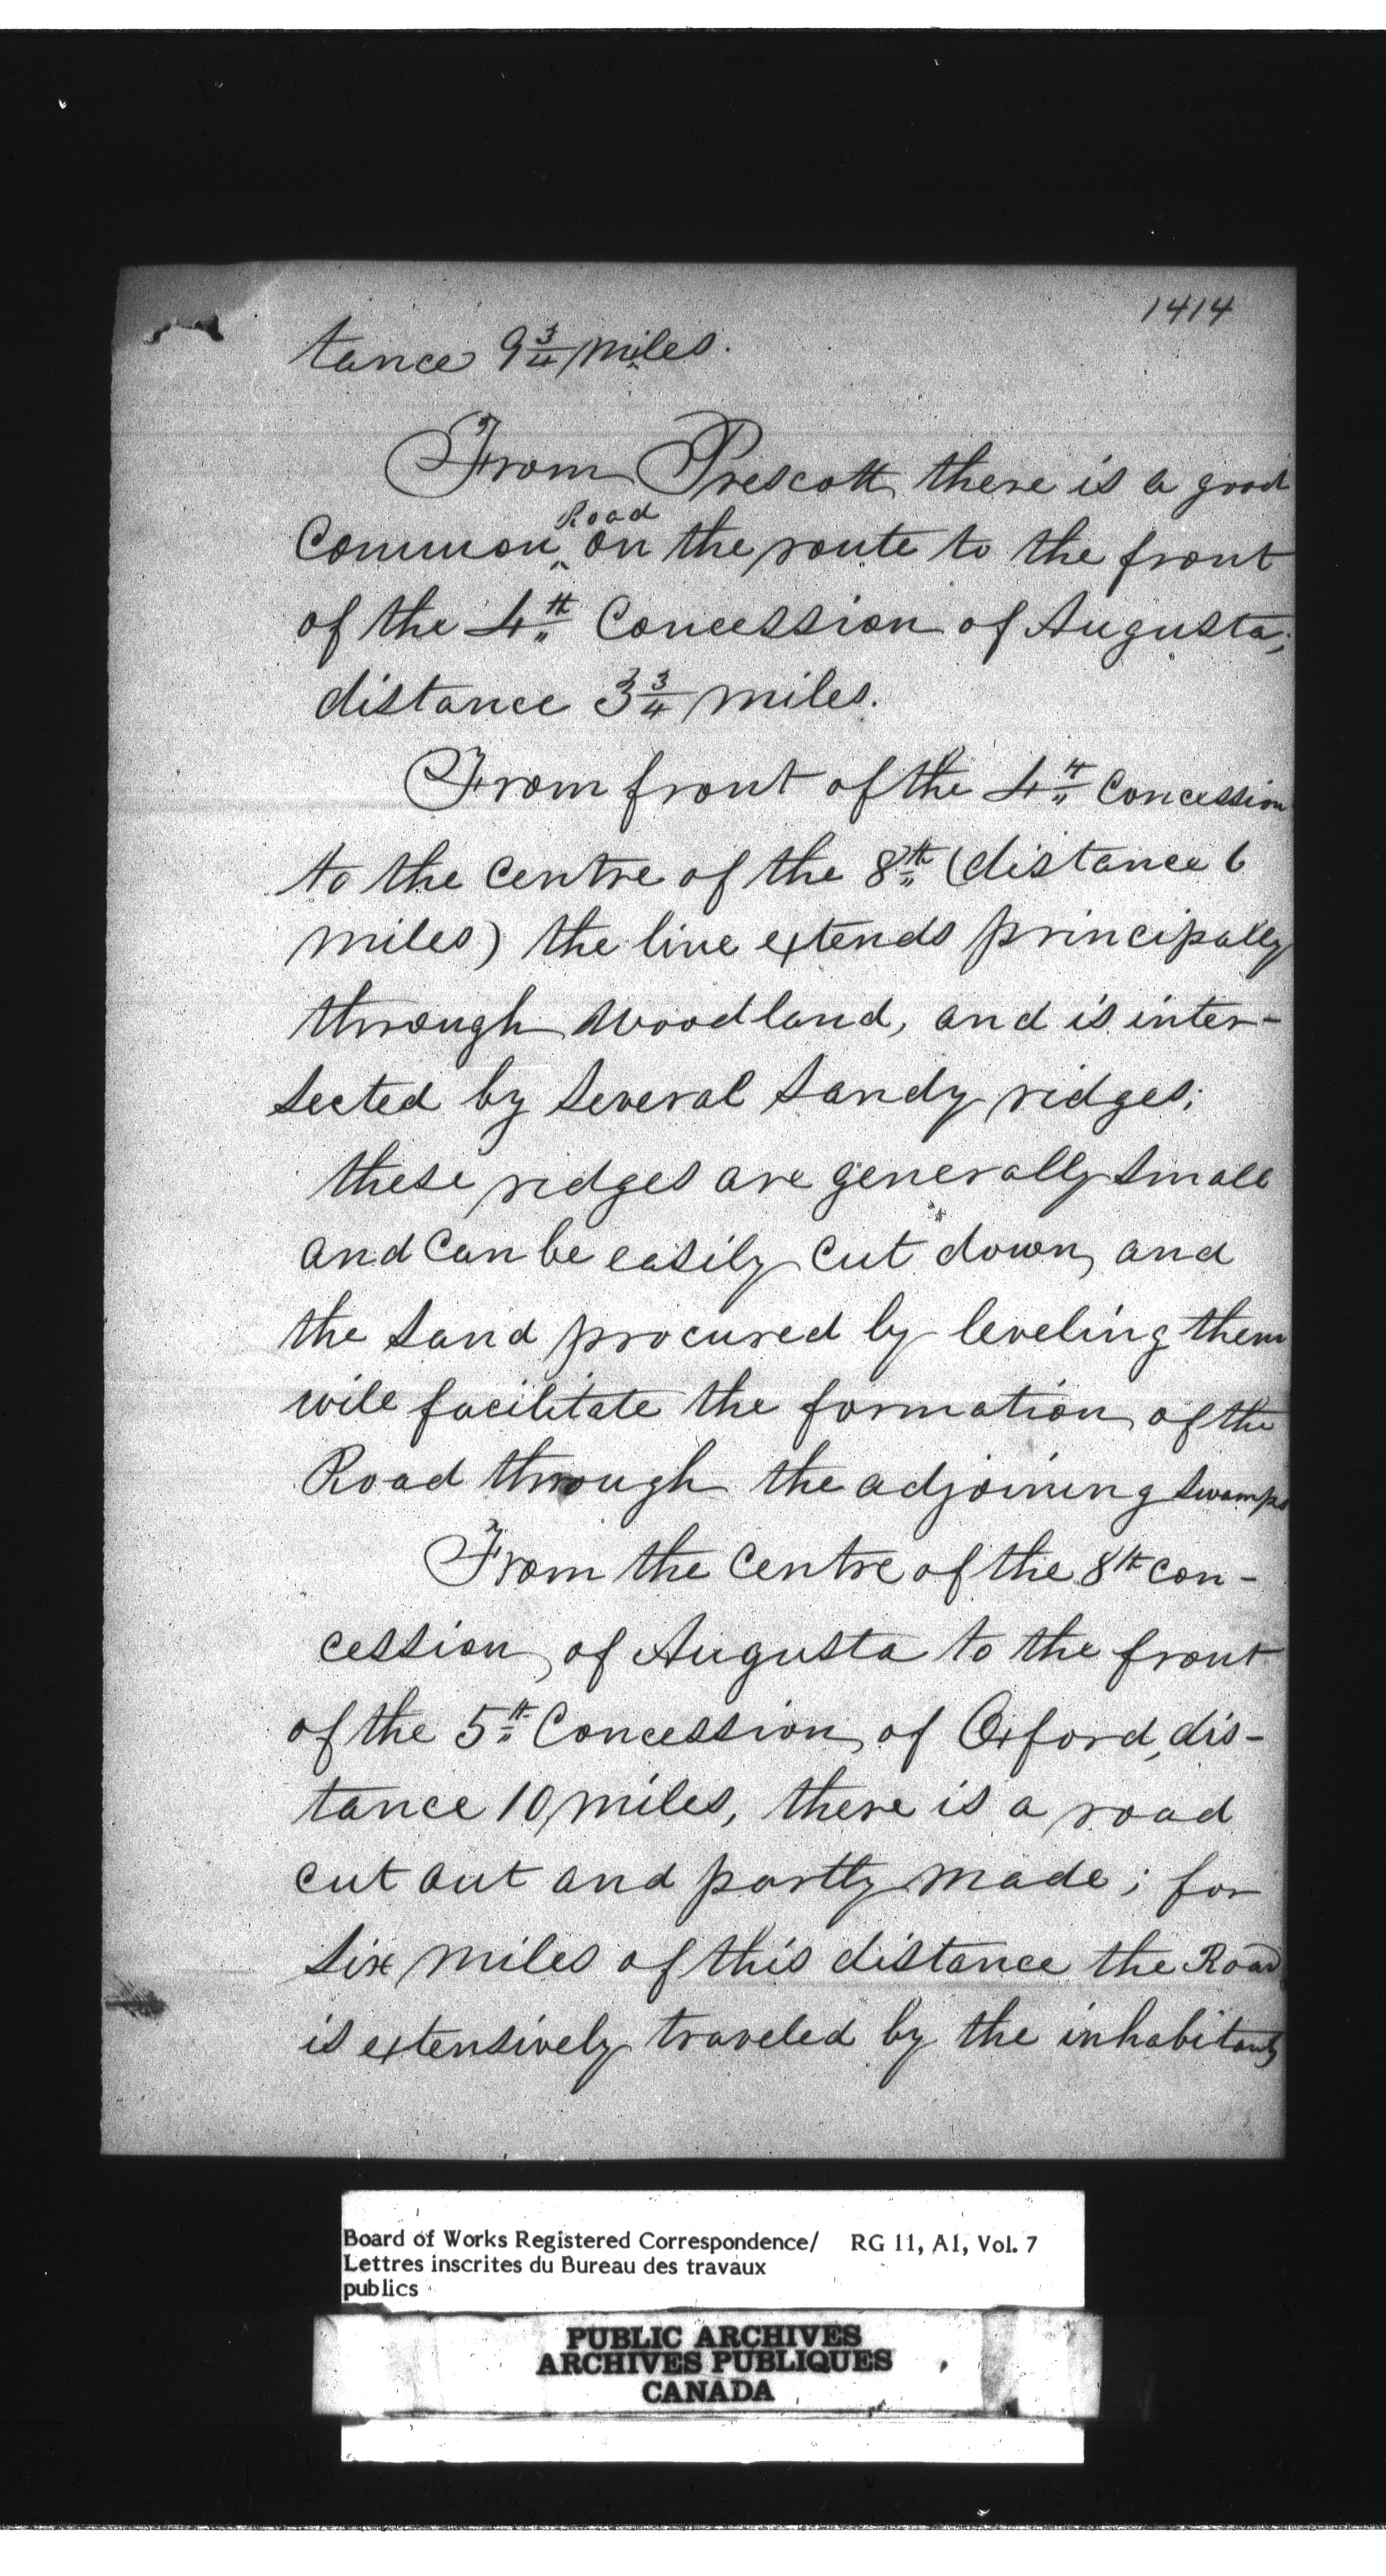 1414
tance 9 3/4 miles.
From Prescott there is a good
Road
Common on the route to the front
of the 4th Concession of Augusta;
distance 3 3/4 miles.
From front of the 4th Concession
to the centre of the 8th (distance 6
miles) the line extends principally
through woodland, and is inter-
sected by several sandy ridges;
these ridges are generally small
and can be easily cut down, and
the sand procured by leveling them
will facilitate the formation of the
Road through the adjoining swamps
From the centre of the 8th con-
cession of Augusta to the front
of the 5th Concession of Oxford, dis-
tance 10 miles, there is a road
cut out and partly made; for
six miles of this distance the Road
is extensively traveled by the inhabitants
Board of Works Registered Correspondence/ RG 11, A1, Vol. 7
Lettres inscrites du Bureau des travaux
publics
PUBLIC ARCHIVES
ARCHIVES PUBLIQUES
CANADA